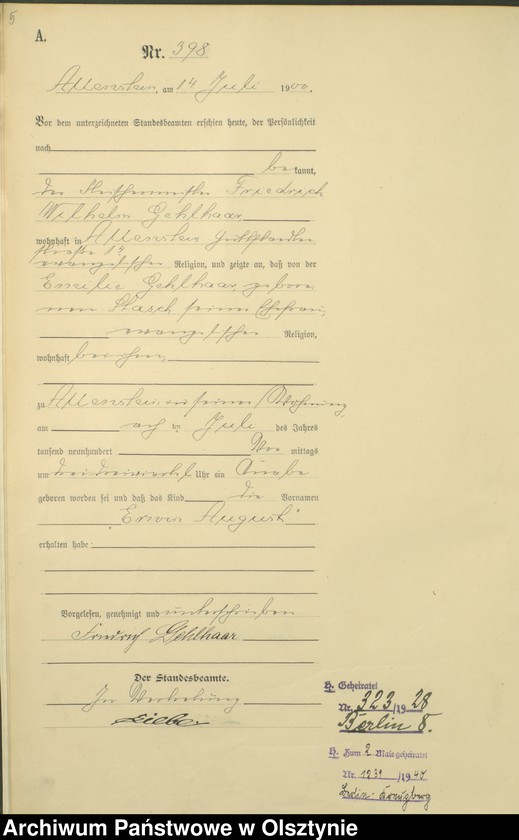 5
A.
Nr. 398
Allenstein, am 14 Juli 1900.
Vor dem unterzeichneten Standesbeamten erschien heute, der Persönlichkeit
nach
be kannt,
der Fleischermeister Friedrich
Wilhelm Gehlhaar
wohnhaft in Allenstein
straße 14
evangelischer Religion, und zeigte an, daß von der
Emilie Gehlhaar gebore
nen Stasch seiner Ehefrau,
evangelischer Religion,
wohnhaft bei ihm,
zu Allenstein in seiner Wohnung
am ten Juli des Jahres
tausend neunhundert Vor mittags
um Uhr ein Knabe
geboren worden sei und daß das Kind die Vornamen
"Erwin August"
erhalten habe:
Vorgelesen, genehmigt und unterschrieben
Friedrich Gehlhaar
Der Standesbeamte.
In Vertretung
H. Geheiratet
Nr. 323/1928
Berlin 8.
H. Zum 2 Male geheiratet
Nr. 1231/1940
Berlin-Kreuzberg
Archiwum Państwowe w Olsztynie